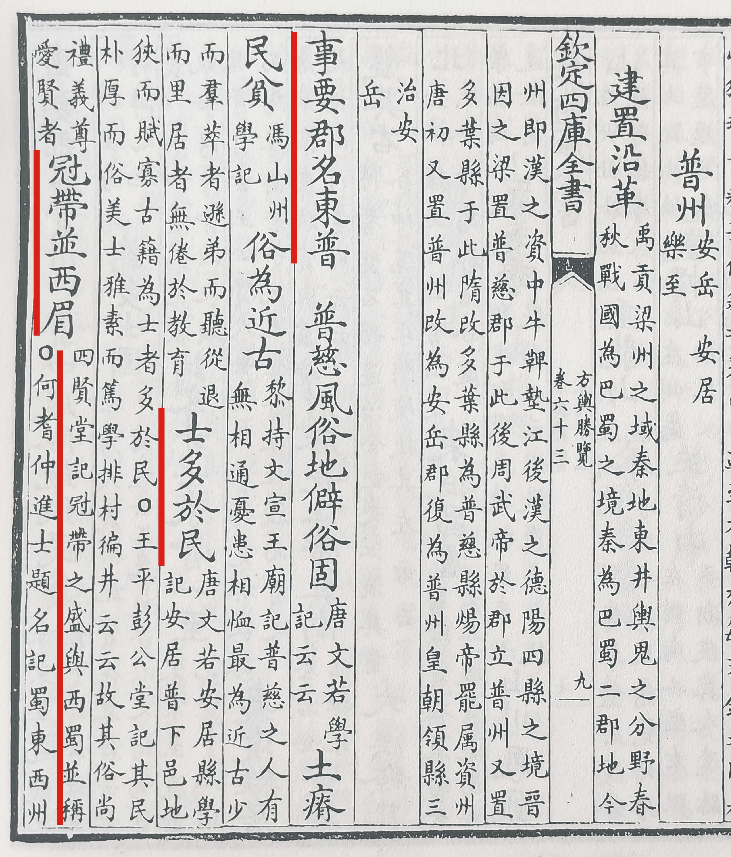 普州 安岳 安居
樂至
建置沿革 禹貢梁州之域秦地東井輿鬼之分野春
秋戰國為巴蜀之境秦為巴蜀二郡地今
欽定四庫全書 方輿勝覽
卷六十三 九
州即漢之資中牛鞞墊江後漢之德陽四縣之境晉
因之梁置普慈郡於此後周武帝於郡立普州又置
多葉縣于此隋改多葉縣為普慈縣煬帝罷属資州
唐初又置普州改為安岳郡復為普州皇朝領縣三
治安
岳
事要郡名東普 普慈風俗地僻俗固 唐文若學
記云云 土瘠
民貧 馮山州
學記 俗為近古 黎持文宣王廟記普慈之人有
無相通憂患相恤最為近古少
而羣萃者遜弟而聽從退
而里居者無倦於教育 士多於民 唐文若安居縣學
記安居普下邑地
狹而賦寡古籍為士者多於民○王平彭公堂記其民
朴厚而俗美士雅素而篤學排村徧井云云故其俗尚
禮義尊
愛賢者 冠帶並西眉 四賢堂記冠帶之盛與西蜀並稱
○何耆仲進士題名記蜀東西州